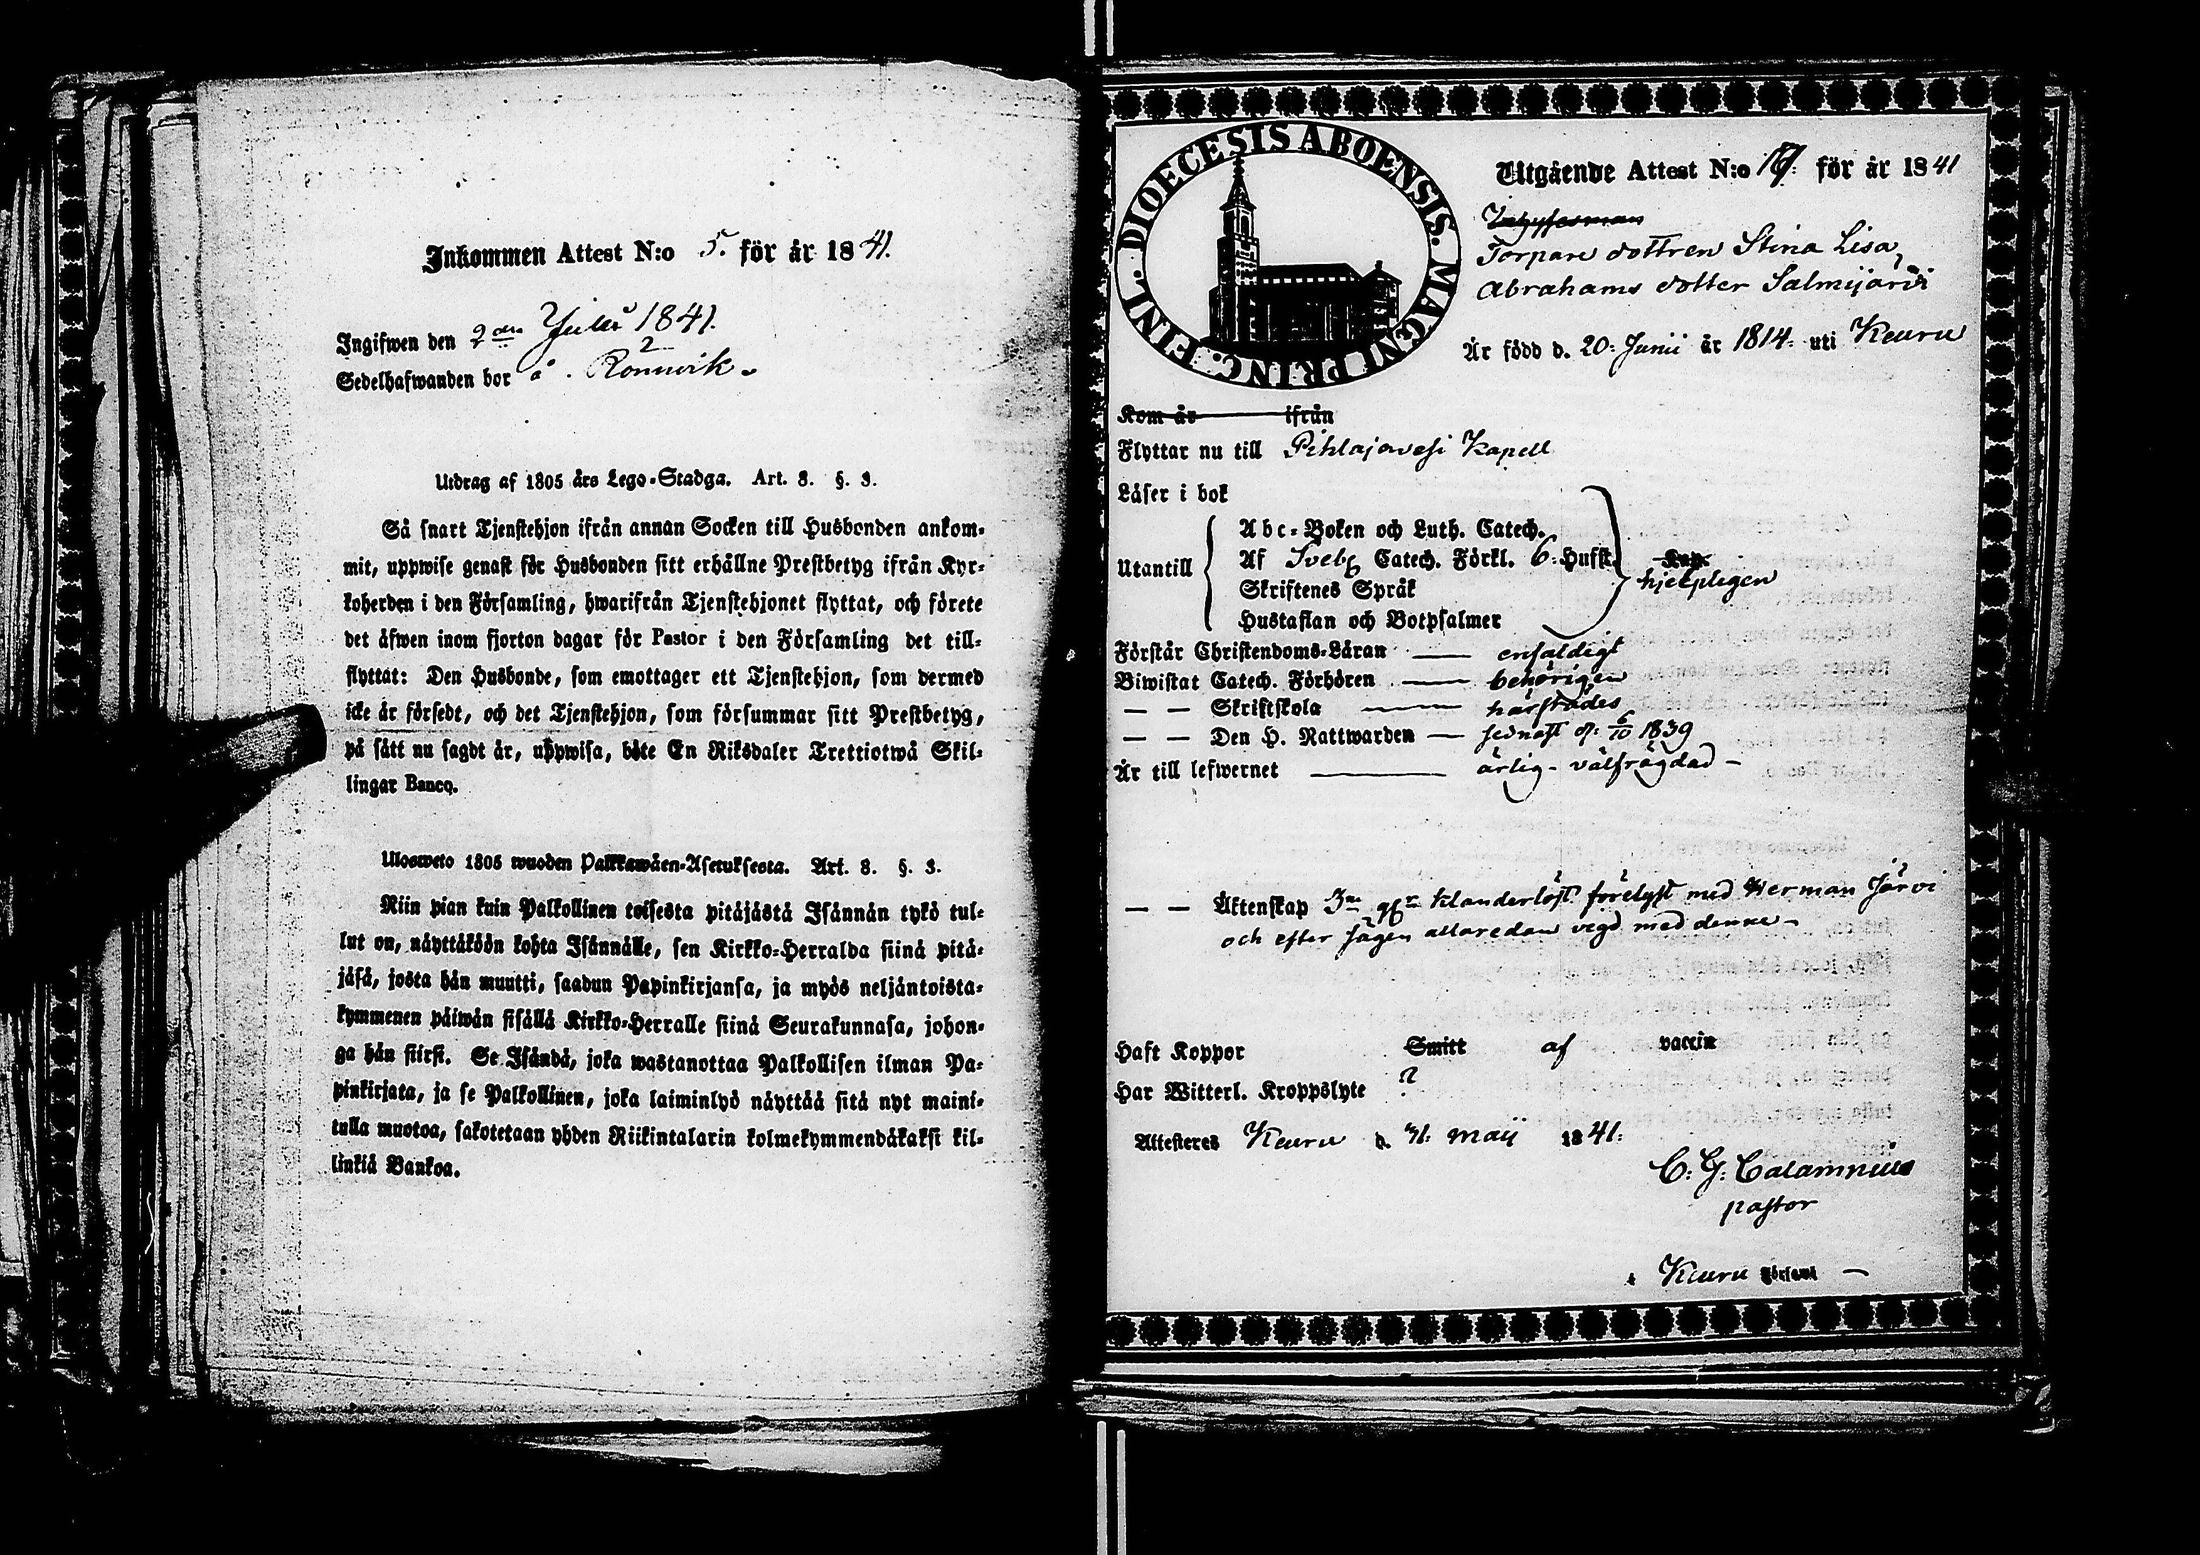 Inkommen Attest N:o 5. för år 1841.
Ingifwen den 2den Julii 1841.
2
Sedelhafwanden bor å Rönnvik
Utdrag af 1805 års Lego-Stadga. Art. 8. §. 3.
Så snart Tjenstehjon ifrån annan Socken till Husbonden ankom-
mit, uppwise genast för Husbonden sitt erhållne Prestbetyg ifrån Kyr-
koherden i den Församling, hwarifrån Tjenstehjonet flyttat, och förete
det åfwen inom fjorton dagar för Pastor i den Församling det till-
flyttat: Den Husbonde, som emottager ett Tjenstehjon, som dermed
icke år försedt, och det Tjenstehjon, som försummar sitt Prestbetyg,
på sått nu sagdt år, uppwisa, böte En Riksdaler Trettiotwå Skil-
lingar Banco.
Ulosweto 1805 wuoden Palkkawåen-Asetuksesta. Art. 8. §. 3.
Niin pian kuin Palkollinen toisesta pitåjåstå Isånnån tykö tul-
lut on, nåyttåköön kohta Isånnålle, sen Kirkko-Herralda siinå pitå-
jåså, josta hån muutti, saadun Papinkirjansa, ja myös neljåntoista-
kymmenen påiwån sisållå Kirkko-Herralle siinå Seurakunnasa, johon-
ga hån siirsi. Se Isåndå, joka wastanottaa Palkollisen ilman Pa-
pinkirjata, ja se Palkollinen, joka laiminlyö nåyttåå sitå nyt maini-
tulla muotoa, sakotetaan yhden Riikintalarin kolmekymmendåkaksi kil-
linkiå Bankoa.
FINL. DIOECESIS ABOENSIS. MAGNI PRINC.
Utgående Attest N:o 17: för år 1841
Torpare dottren Stina Lisa,
Abrahams dotter Salmijärvi
År född d. 20: Junii år 1814: uti Keuru
Kom år ifrån
Flyttar nu till Pihlajavesi Kapell
Låser i bok
Abc-Boken och Luth. Catech.
Utantill Af Sveb Catech. Förkl. 6: Hufst. Kap.
hjelpligen
Skriftenes Språk
Hustaflan och Botpsalmer
Förstår Christendoms-Låran — enfaldigt
Biwistat Catech. Förhören — behörigen
— — Skriftskola — härstädes
— — Den H. Nattwarden — sednast d: 6/10 1839
År till lefwernet — ärlig - välfrägdad -
— — Åktenskap 3ne ggr klanderlöst förelyst med Herman Järvi
och efter sägen allaredan vigd med denne -
Haft Koppor Smitt af vaccin
Har Witterl. Kroppslyte ?
Attesteres Keuru d. 31: Maji 1841:
C: G: Calamnius
pastor
i Keuru Församl —